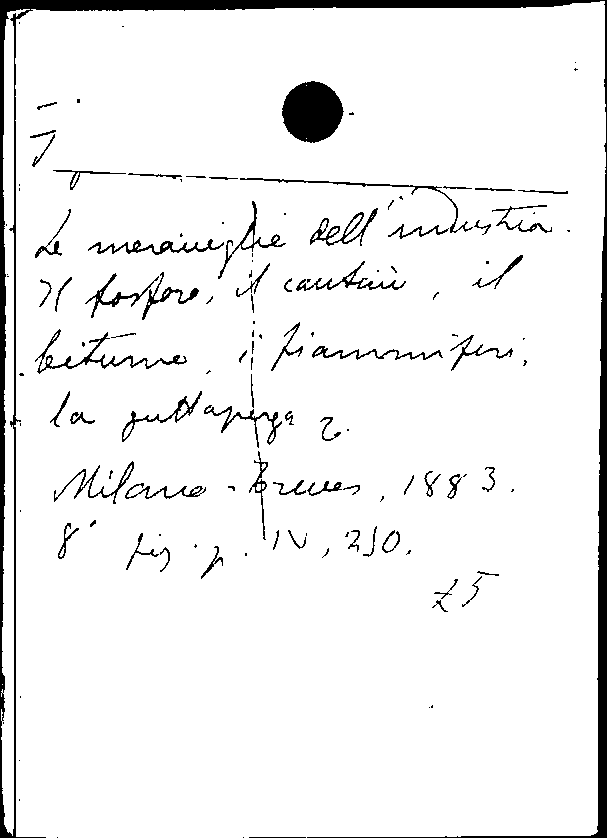 Le meraviglie dell'industria.
Il fosforo, il cautciù, il
bitume, i fiammiferi,
la guttaperga
Milano - Treves, 1883.
8° fig. p. IV, 250.
£ 5